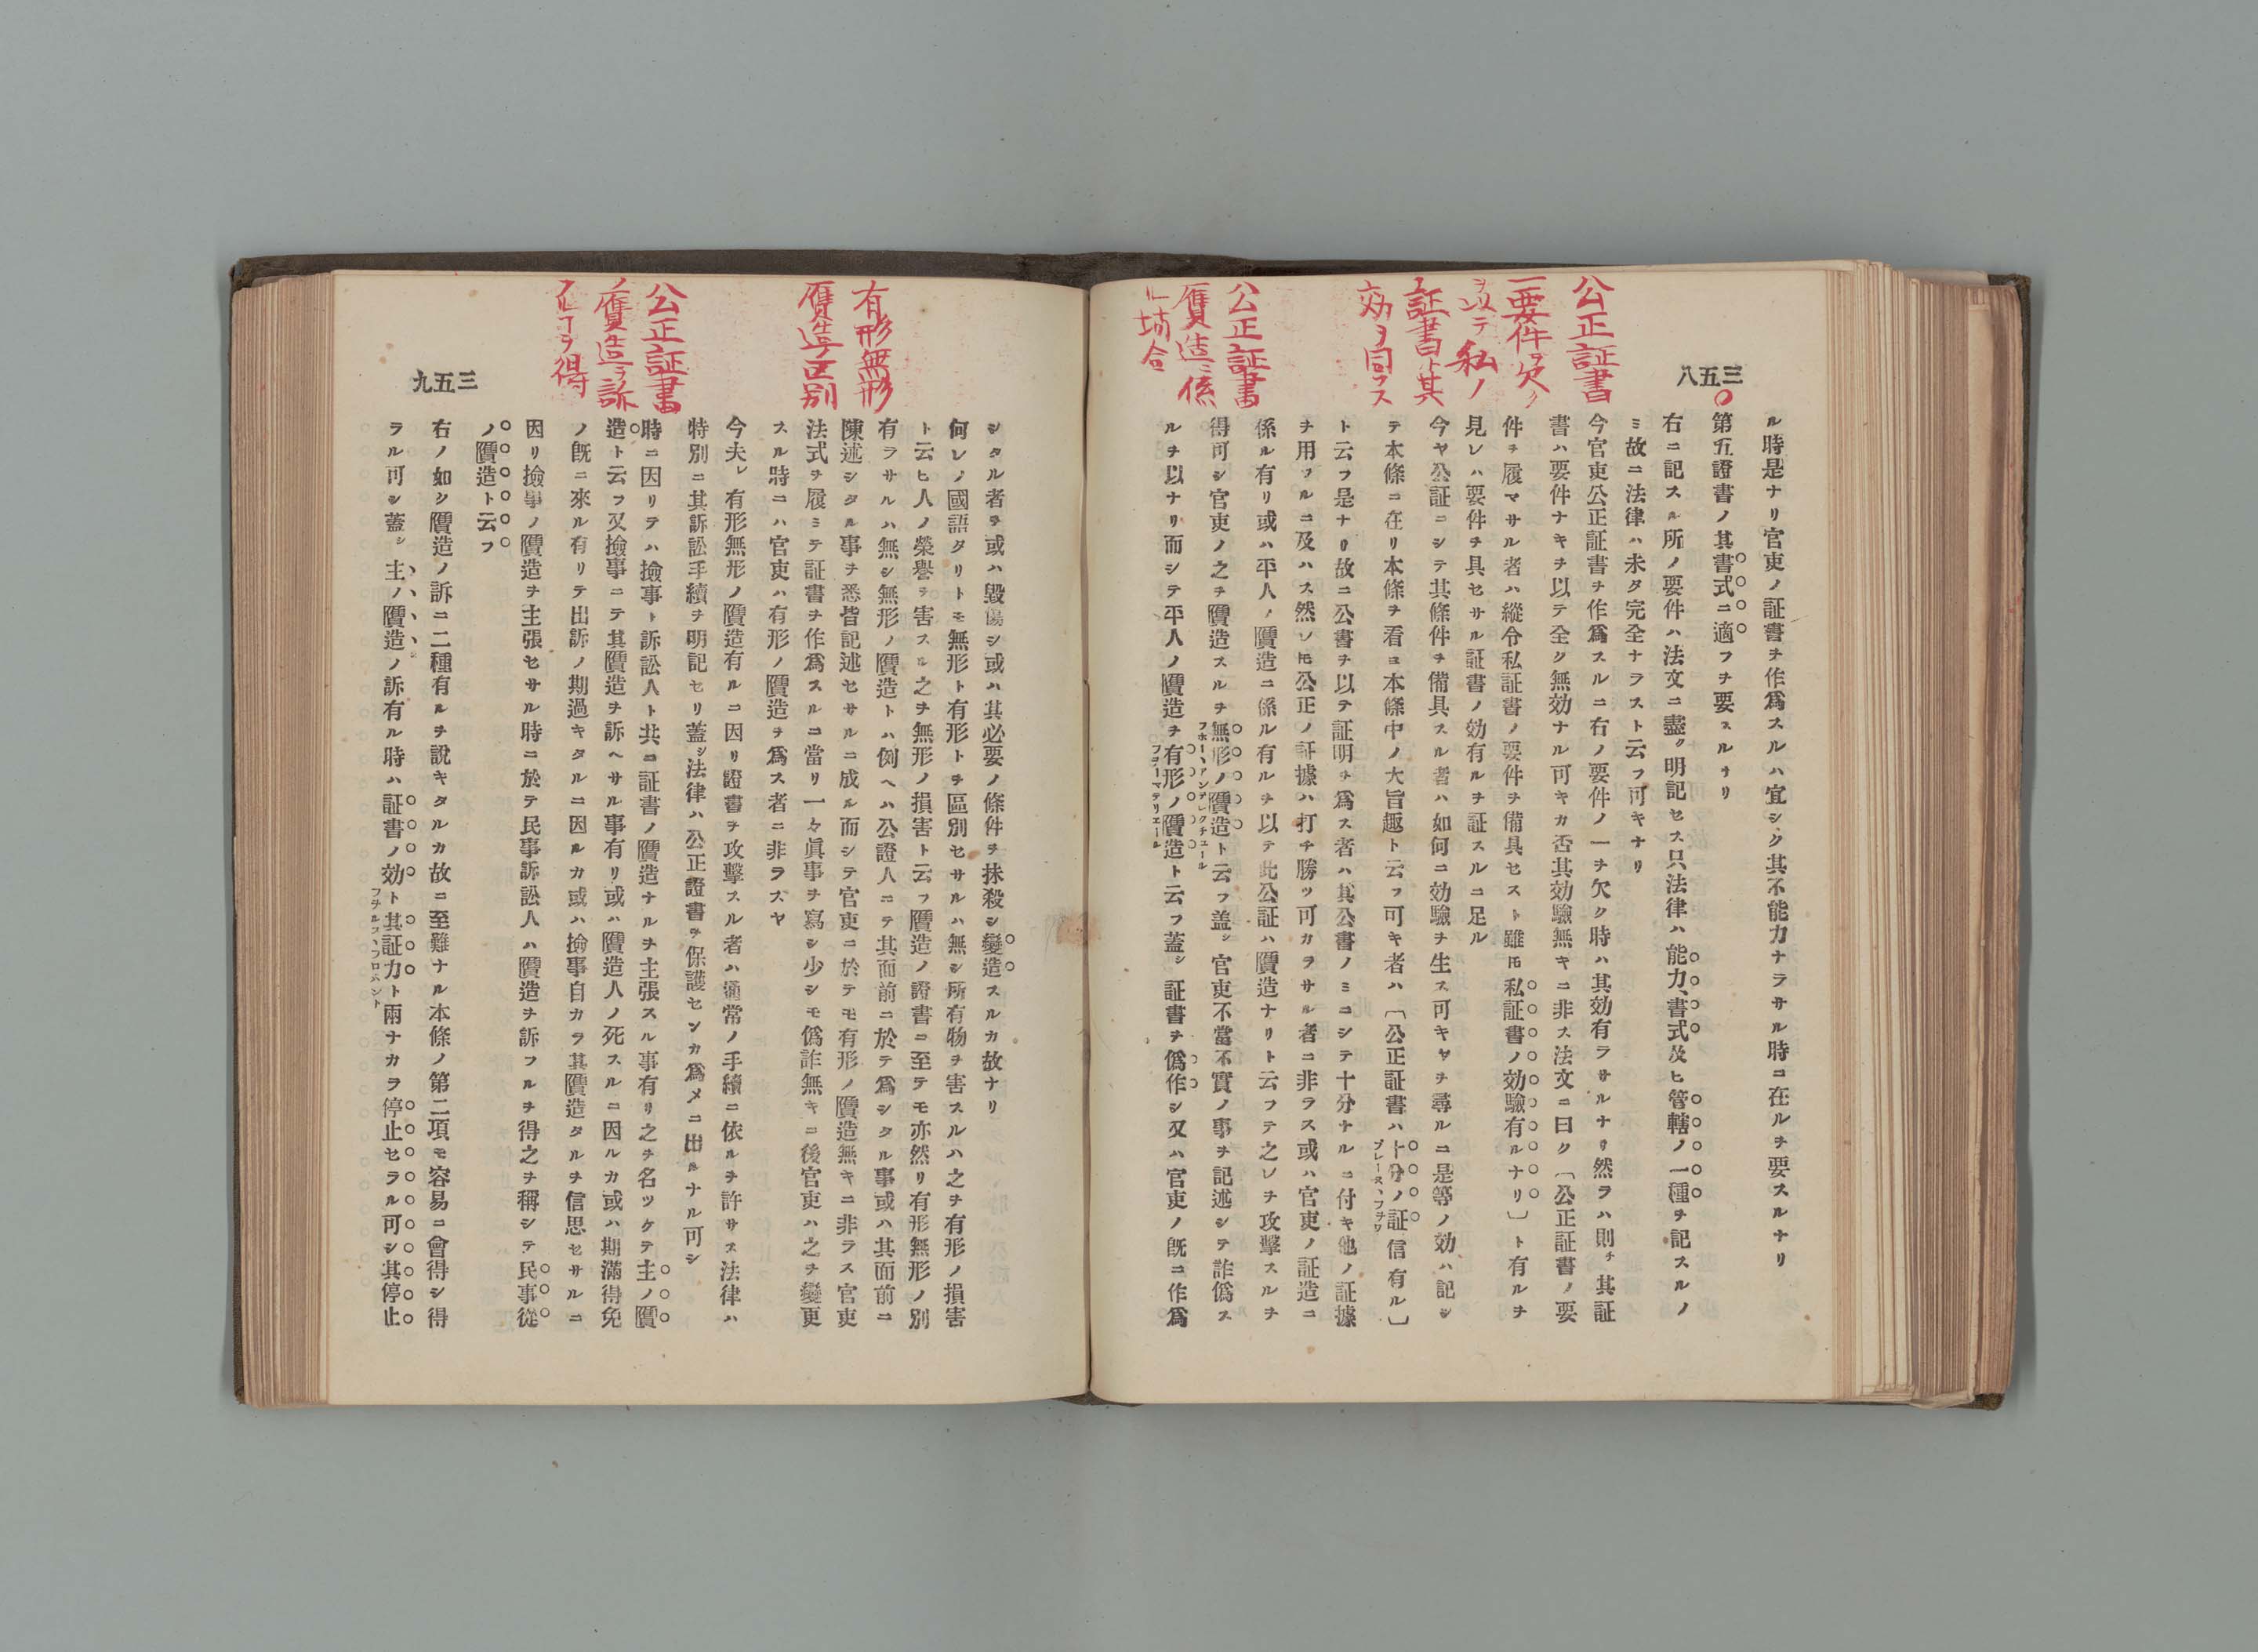 公正証書
一要件ヲ欠ク
ヲ以テ私ノ
証書ト其
効ヲ同フス
公正証書
贋造ニ係
ル場合
三五八
ル時是ナリ官吏ノ証書ヲ作爲スルハ宜シク其不能力ナラサル時ニ在ルヲ要スルナリ
第五證書ノ其書式ニ適フヲ要スルナリ
右ニ記スル所ノ要件ハ法文ニ盡ク明記セス只法律ハ能力、書式及ヒ管轄ノ一種ヲ記スルノ
ミ故ニ法律ハ未タ完全ナラスト云フ可キナリ
今官吏公正証書ヲ作爲スルニ右ノ要件ノ一ヲ欠ク時ハ其効有ラサルナリ然ラハ則チ其証
書ハ要件ナキヲ以テ全ク無効ナル可キカ否其効驗無キニ非ス法文ニ曰ク〔公正証書ノ要
件ヲ履マサル者ハ縱令私証書ノ要件ヲ備具セスト雖𪜈私証書ノ効驗有ルナリ〕ト有ルヲ
見レハ要件ヲ具セサル証書ノ効有ルヲ証スルニ足ル
今ヤ公証ニシテ其條件ヲ備具スル者ハ如何ニ効驗ヲ生ス可キヤヲ尋ルニ是等ノ効ハ記シ
テ本條ニ在リ本條ヲ看ヨ本條中ノ大旨趣ト云フ可キ者ハ〔公正証書ハ十分ノ証信有ル〕
プレーヌ、フヲワ
ト云フ是ナリ故ニ公書ヲ以テ証明ヲ爲ス者ハ其公書ノミニシテ十分ナルニ付キ他ノ証據
ヲ用フルニ及ハス然レ𪜈公正ノ証據ハ打チ勝ツ可カラサル者ニ非ラス或ハ官吏ノ証造ニ
係ル有リ或ハ平人ノ贋造ニ係ル有ルヲ以テ此公証ハ贋造ナリト云フテ之レヲ攻擊スルヲ
得可シ官吏ノ之ヲ贋造スルヲ無形ノ贋造ト云フ盖シ官吏不當不實ノ事ヲ記述シテ詐僞ス
フホー、アンテレクチュール
ルヲ以テナリ而シテ平人ノ贋造ヲ有形ノ贋造ト云フ蓋シ証書ヲ僞作シ又ハ官吏ノ既ニ作爲
フヲーマテリエール
有形無形
贋造ノ区别
公正証書
ノ贋造ヲ訴
フルヿヲ得
三五九
シタル者ヲ或ハ毀傷シ或ハ其必要ノ條件ヲ抹殺シ變造スルカ故ナリ
何レノ國語タリトモ無形ト有形トヲ區別セサルハ無シ所有物ヲ害スルハ之ヲ有形ノ損害
ト云ヒ人ノ榮譽ヲ害スル之ヲ無形ノ損害ト云フ贋造ノ證書ニ至テモ亦然リ有形無形ノ別
有ラサルハ無シ無形ノ贋造トハ例ヘハ公證人ニテ其面前ニ於テ爲シタル事或ハ其面前ニ
陳述シタル事ヲ悉皆記述セサルニ成ル而シテ官吏ニ於テモ有形ノ贋造無キニ非ラス官吏
法式ヲ履ミテ証書ヲ作爲スルニ當リ一々眞事ヲ寫シ少シモ僞詐無キニ後官吏ハ之ヲ變更
スル時ニハ官吏ハ有形ノ贋造ヲ爲ス者ニ非ラスヤ
今夫レ有形無形ノ贋造有ルニ因リ證書ヲ攻擊スル者ハ通常ノ手續ニ依ルヲ許サス法律ハ
特別ニ其訴訟手續ヲ明記セリ蓋シ法律ハ公正證書ヲ保護センカ爲メニ出ルナル可シ
時ニ因リテハ撿事ト訴訟人ト共ニ証書ノ贋造ナルヲ主張スル事有リ之ヲ名ツケテ主ノ贋
造ト云フ又撿事ニテ其贋造ヲ訴ヘサル事有リ或ハ贋造人ノ死スルニ因ルカ或ハ期滿得免
ノ既ニ來ル有リテ出訴ノ期過キタルニ因ルカ或ハ撿事自カラ其贋造タルヲ信思セサルニ
因リ撿事ノ贋造ヲ主張セサル時ニ於テ民事訴訟人ハ贋造ヲ訴フルヲ得之ヲ稱シテ民事從
ノ贋造ト云フ
右ノ如シ贋造ノ訴ニ二種有ルヲ說キタルカ故ニ至難ナル本條ノ第二項モ容易ニ會得シ得
ラル可シ蓋シ主ノ贋造ノ訴有ル時ハ証書ノ効ト其証力ト兩ナカラ停止セラル可シ其停止